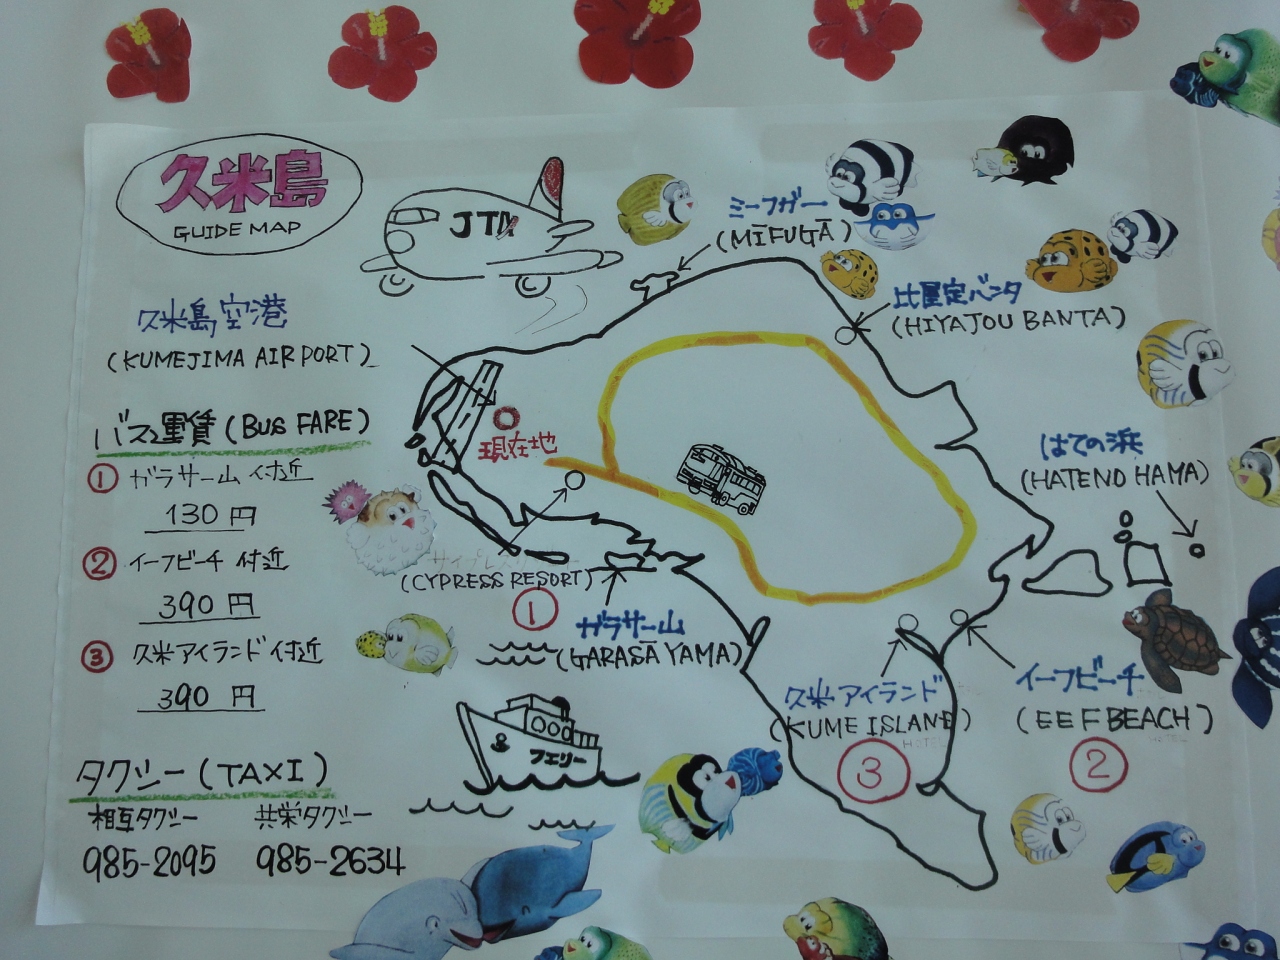 久米島
GUIDE MAP
JTA
ミーフガー
(MĪFUGĀ)
比屋定バンタ
(HIYAJOU BANTA)
久米島空港
(KUMEJIMA AIRPORT)
現在地
はての浜
(HATENO HAMA)
バス運賃(BUS FARE)
① ガラサー山付近
130円
② イーフビーチ付近
390円
③ 久米アイランド付近
390円
サイプレスリゾート
(CYPRESS RESORT)
①
ガラサー山
(GARASĀ YAMA)
久米アイランド
(KUME ISLAND)
HOTEL
③
イーフビーチ
(EEF BEACH)
②
フェリー
タクシー(TAXI)
相互タクシー 共栄タクシー
985-2095 985-2634